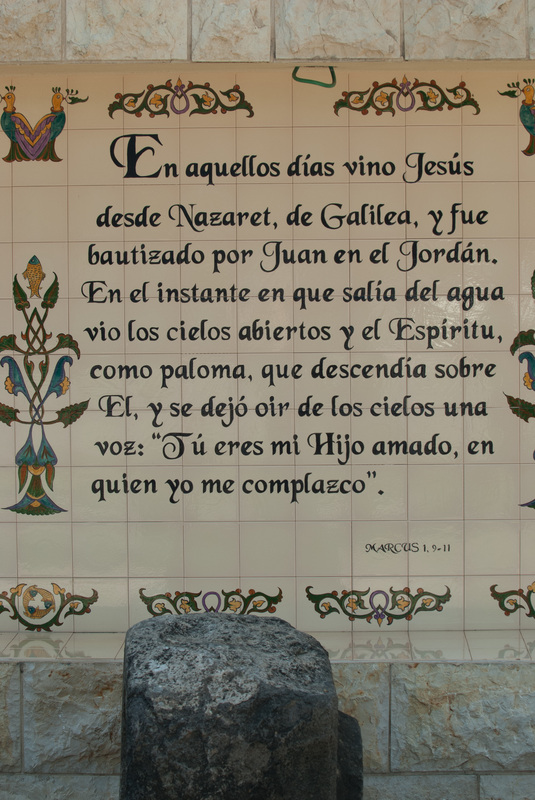 En aquellos días vino Jesús
desde Nazaret, de Galilea, y fue
bautizado por Juan en el Jordán.
En el instante en que salía del agua
vio los cielos abiertos y el Espíritu,
como paloma, que descendía sobre
El, y se dejó oir de los cielos una
voz: “Tú eres mi Hijo amado, en
quien yo me complazco”.
MARCUS 1, 9-11